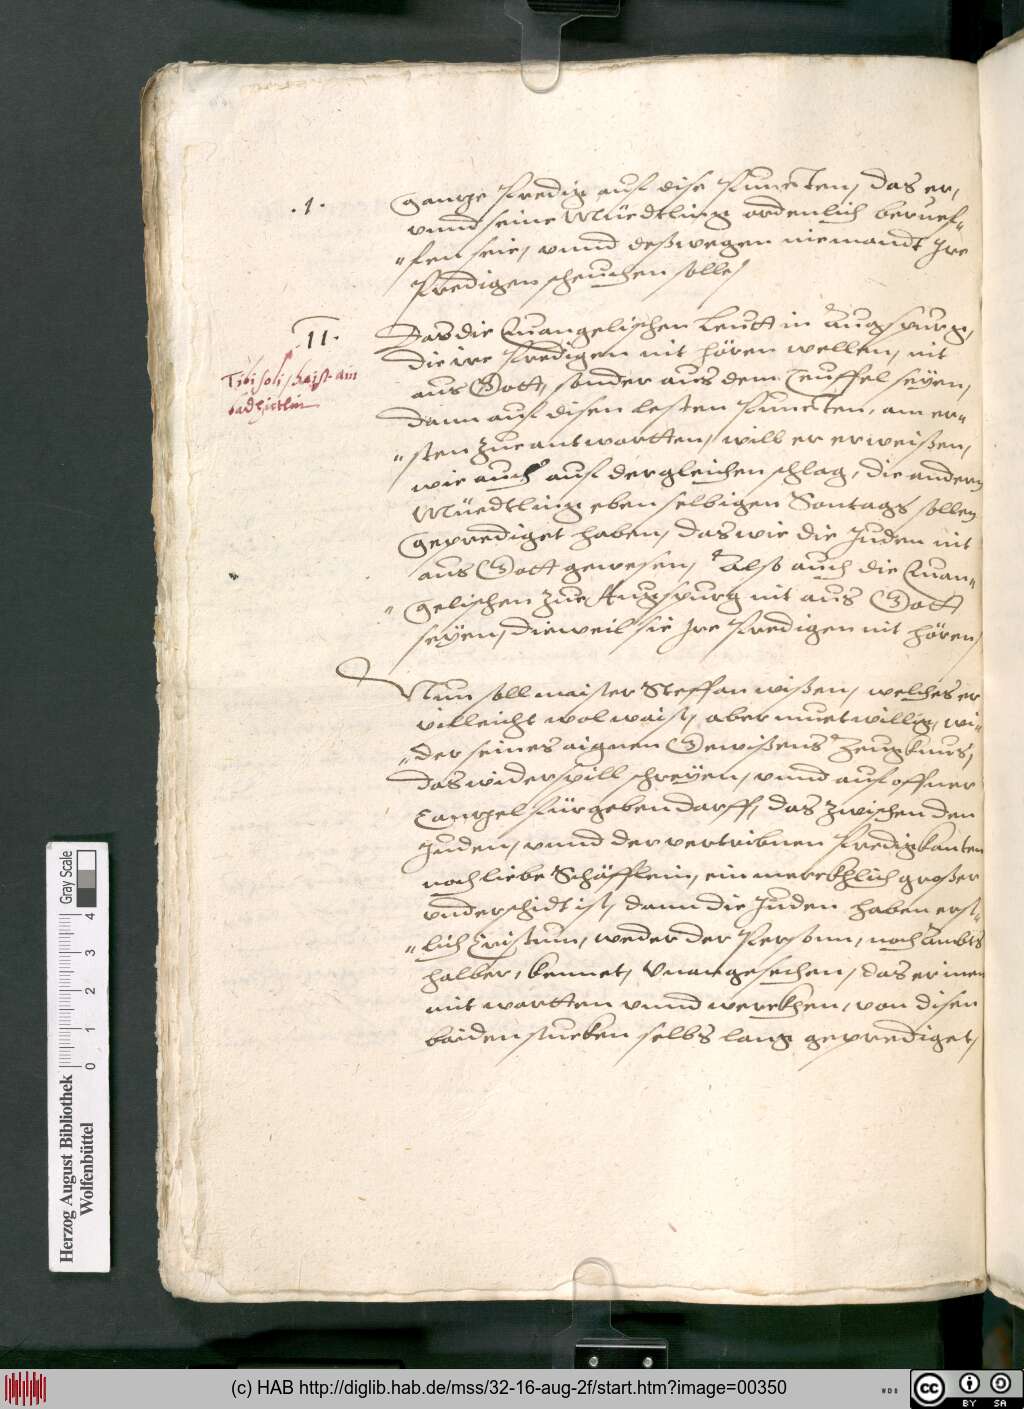 .1.
gantze Predig auf dise Puncten, das er,
vnnd seine Müedtling ordenlich beruef-
"fen seie, vnnd deßwegen niemandt Jre
Predigen scheuchen solle,
II.
Das die Euangelischen Leutt in Augspurg,
die ire Predigen nit hören wellen, nit
aus Gott, sonder aus dem Teuffel seyen,
dann auf disen lesten Puncten, am er-
"sten zue antwortten, will er erweisen,
wie auch auf dergleichen schlag, die andern
Müedtling eben selbigen Sontags sollen
geprediget haben, das wie die Juden nit
aus Gott gewesen, Also auch die Euan-
"gelischen zue Augspurg nit aus Gott
seyen, dieweil sie Jre Predigen nit hören,
Tibi soli
Nun soll maister Steffan wißen, welches er
villeicht wol waist, aber muetwillig, wi-
"der seines aignen Gewißens Zeugknus,
das widerspill schreyen, vnnd auf offner
Cantzel fürgeben darff, das zwischen den
Juden, vnnd der vertribnen Predigkanten
noch liebe Schäfflein, ein merckhlich großer
vnderschidt ist, dann die Juden haben erst-
"lich Christum, weder der Person, noch Ambts
halber, kennet, Vnangesechen, das er inen
mit wortten vnnd werckhen, von disen
baiden stucken selbs lang geprediget,
Gray Scale
0 1 2 3 4
Herzog August Bibliothek
Wolfenbüttel
(c) HAB http://diglib.hab.de/mss/32-16-aug-2f/start.htm?image=00350
WDB
cc BY SA